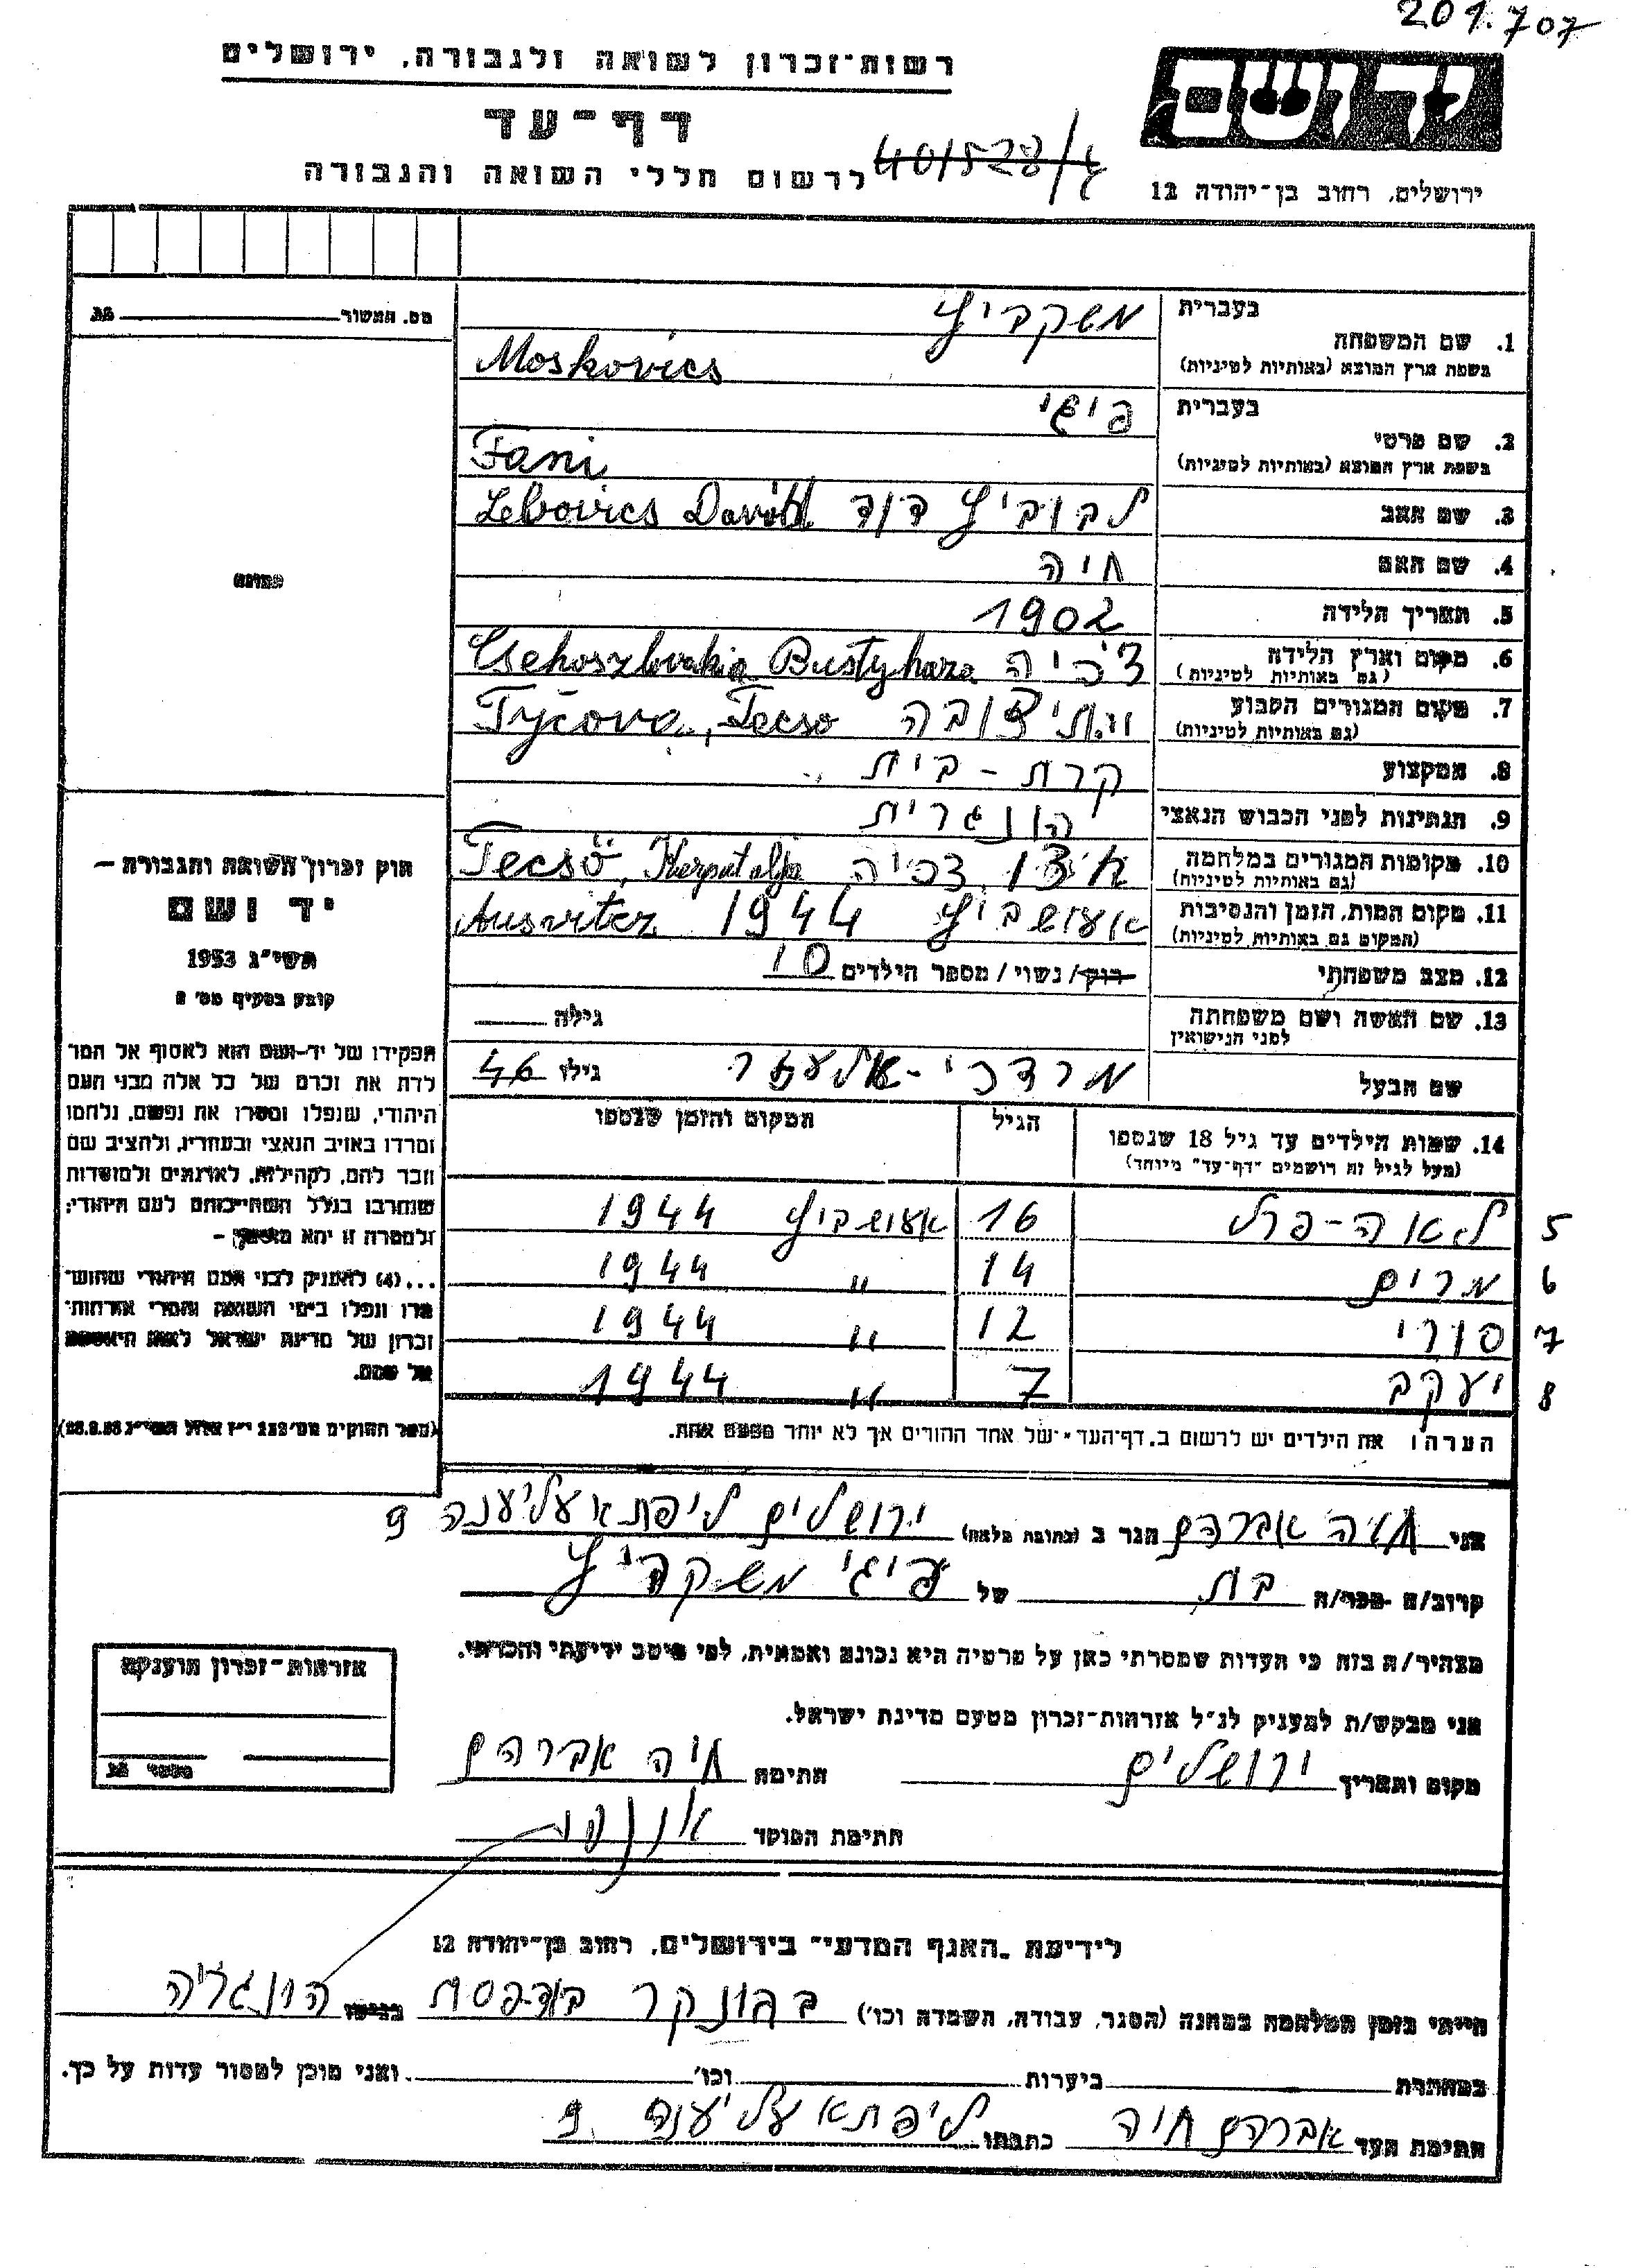 201.707
רשות־זכרון לשואה ולגבורה, ירושלים
יד ושם
דף־עד
401528/4
לרשום חללי השואה והגבורה
ירושלים, רחוב בן־יהודה 12
מס. תמשור
בעברית משקביץ
1. שם המשפחה
בשפת ארץ המוצא (באותיות לטיניות) Moskovics
בעברית פיגי
2. שם פרטי
בשפת ארץ המוצא (באותיות לטיניות) Fani
3. שם האב לבוביץ דוד Lebovics David
4. שם האם חיה
5. תאריך הלידה 1902
6. מקום וארץ הלידה צ'כיה Csehoszlovakia Bustyhaza
(גם באותיות לטיניות)
7. מקום המגורים הקבוע Tyčova, Tecso
(גם באותיות לטיניות)
8. המקצוע קרת-בית
9. הנתינות לפני הכבוש הנאצי הונגרית
10. מקומות המגורים במלחמה צכיה Tecső, Karpatalja
(גם באותיות לטיניות)
11. מקום המות, הזמן והנסיבות אעושביץ 1944 Ausvitcz
(המקום גם באותיות לטיניות)
12. מצב משפחתי רוק/ נשוי / מספר הילדים 10
13. שם האשה ושם משפחתה גילה
לפני הנישואין
שם הבעל מרדכי-אלעזר גילו 46
14. שמות הילדים עד גיל 18 שנספו הגיל המקום והזמן שנספו
(מעל לגיל זה רושמים "דף־עד" מיוחד)
5 לאה-פרל 16 אעושביץ 1944
6 מרים 14 " 1944
7 סורי 12 " 1944
8 יעקב 7 " 1944
הערה: את הילדים יש לרשום ב"דף־העד" של אחד ההורים אך לא יותר מפעם אחת.
תמונה
חוק זכרון השואה והגבורה –
יד ושם
תשי"ג 1953
קובע בסעיף מס' 2
תפקידו של יד־ושם הוא לאסוף אל המו־
לדת את זכרם של כל אלה מבני העם
היהודי, שנפלו ומסרו את נפשם, נלחמו
ומרדו באויב הנאצי ובעוזריו, ולהציב שם
וזכר להם, לקהילות, לארגונים ולמוסדות
שנחרבו בגלל השתייכותם לעם היהודי;
ולמטרה זו יהא מוסמך –
...(4) להעניק לבני העם היהודי שהוש־
מדו ונפלו בימי השואה והמרי אזרחות־
זכרון של מדינת ישראל לאות היאספם
אל עמם.
אני חיה אברהם הגר ב (כתובת מלאה) ירושלים ליפתא עליענה 9
קרוב/ה מכר/ה בת של פיגי משקביץ
מצהיר/ה בזה כי העדות שמסרתי כאן על פרטיה היא נכונה ואמתית, לפי מיטב ידיעתי והכרתי.
אני מבקש/ת להעניק לנ"ל אזרחות־זכרון מטעם מדינת ישראל.
מקום ותאריך ירושלים חתימה חיה אברהם
חתימת הפוקד
אזרחות־זכרון הוענקה
מספר
לידיעת "האגף המדעי" בירושלים, רחוב בן־יהודה 12
הייתי בזמן המלחמה במחנה (הסגר, עבודה, השמדה וכו') בבונקר בודפסט הונגריה
במחתרת ביערות וכו' ואני מוכן למסור עדות על כך.
חתימת העד אברהם חיה כתבתו ליפתא עליענה 9